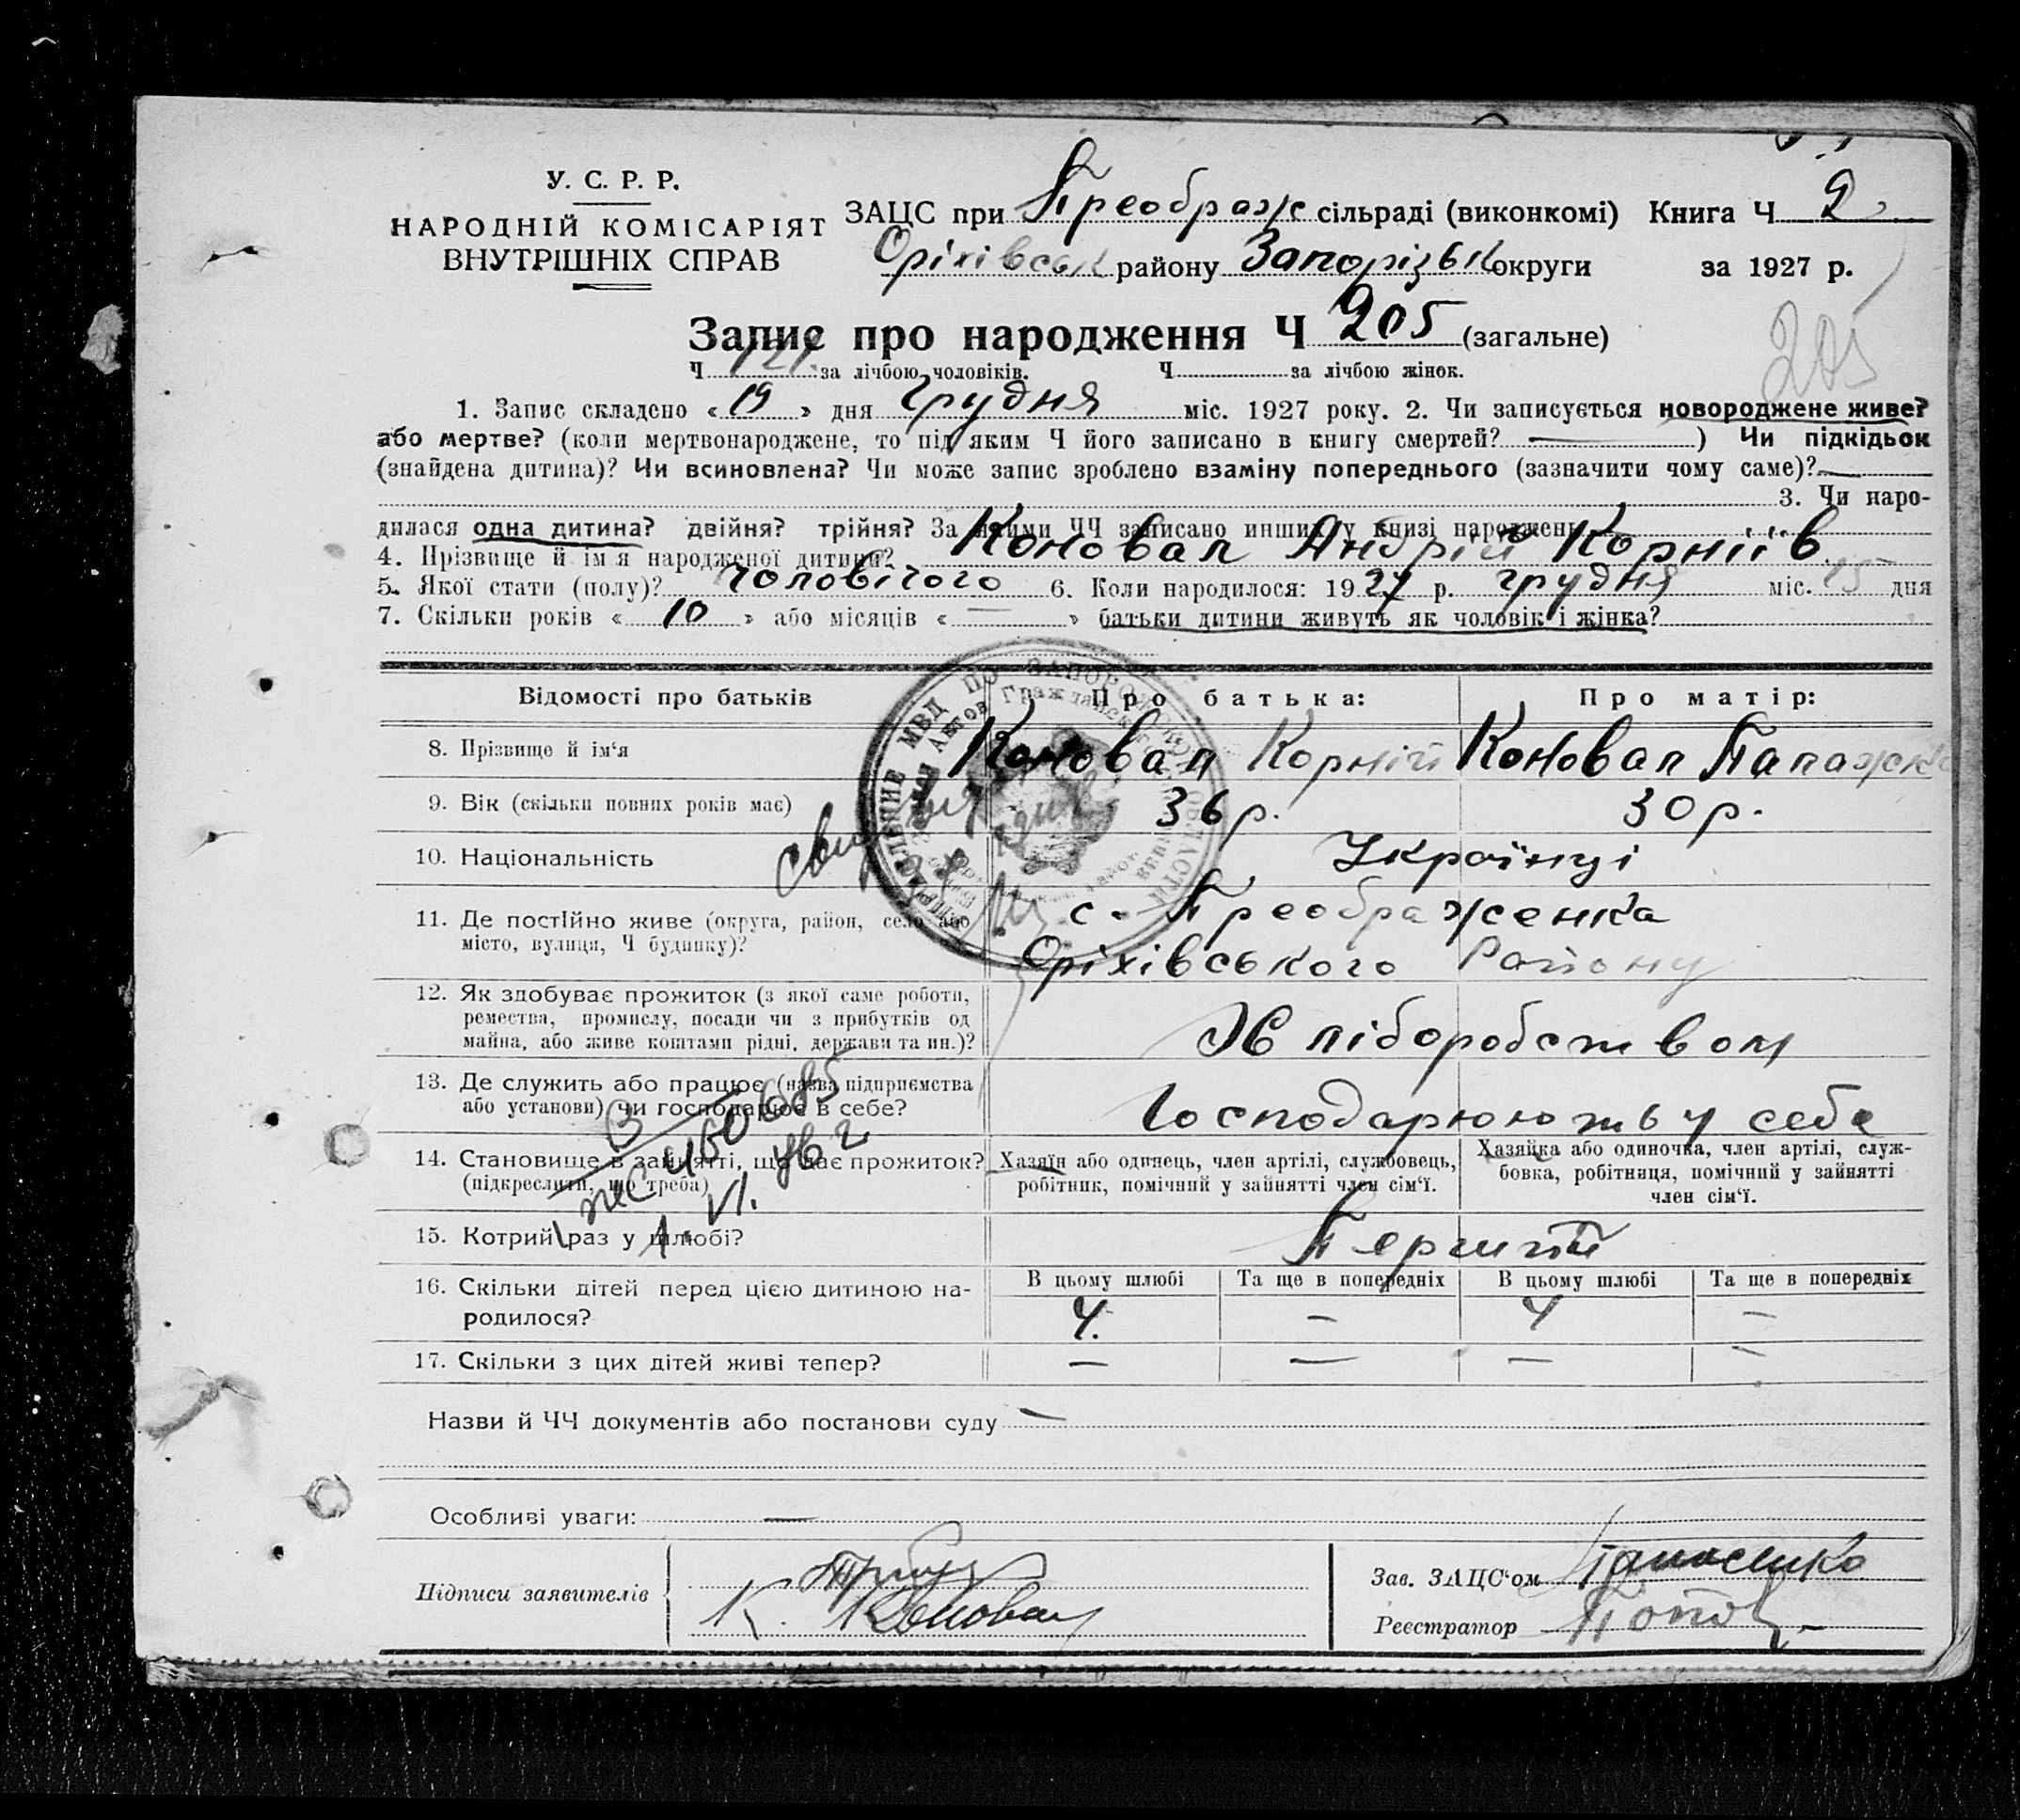 У. С. Р. Р.
НАРОДНІЙ КОМІСАРІЯТ
ВНУТРІШНІХ СПРАВ
ЗАЦС при Преображ сільраді (виконкомі) Книга Ч 2
Оріхівськ району Запорізьк округи за 1927 р.
Запис про народження Ч 205 (загальне)
205
Ч 121 за лічбою чоловіків. Ч за лічбою жінок.
1. Запис складено « 19 » дня Грудня міс. 1927 року. 2. Чи записується новороджене живе?
або мертве? (коли мертвонароджене, то під яким Ч його записано в книгу смертей? — ) Чи підкідьок
(знайдена дитина)? Чи всиновлена? Чи може запис зроблено взаміну попереднього (зазначити чому саме)? —
3. Чи наро-
дилася одна дитина? двійня? трійня? За якими ЧЧ записано инших у книзі народжень
4. Прізвище й ім'я народженої дитини? Коновал Андрій Корніїв
5. Якої стати (полу)? чоловічого 6. Коли народилося: 1927 р. грудня міс. 15 дня
7. Скільки років « 10 » або місяців « — » батьки дитини живуть як чоловік і жінка?
Відомості про батьків Про батька: Про матір:
8. Прізвище й ім'я Коновал Корній Коновал
9. Вік (скільки повних років має) 36 р. 30 р.
10. Національність Українці
11. Де постійно живе (округа, район, село або с. Преображенка
місто, вулиця, Ч будинку)? Оріхівського Району
12. Як здобуває прожиток (з якої саме роботи,
ремества, промислу, посади чи з прибутків од Хліборобством
майна, або живе коштами рідні, держави та ин.)?
13. Де служить або працює (назва підприємства
або установи) чи господарює в себе? Господарюють у себе
14. Становище в зайнятті, що дає прожиток? Хазяїн або одинець, член артілі, службовець, Хазяйка або одиночка, член артілі, служ-
(підкреслити, що треба) робітник, помічний у зайнятті член сім'ї. бовка, робітниця, помічний у зайнятті
член сім'ї.
15. Котрий раз у шлюбі? Перший
16. Скільки дітей перед цією дитиною на- В цьому шлюбі Та ще в попередніх В цьому шлюбі Та ще в попередніх
родилося? 4. — 4 —
17. Скільки з цих дітей живі тепер? — — — —
Назви й ЧЧ документів або постанови суду —
Особливі уваги: —
Підписи заявителів
К. Коновал
Зав. ЗАЦС'ом
Реєстратор